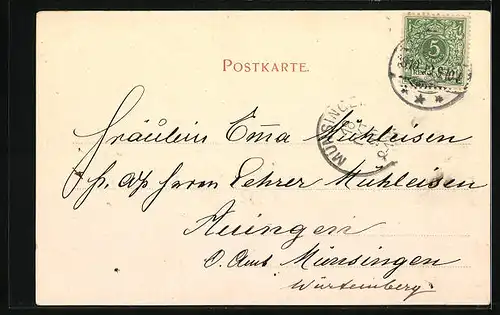 POSTKARTE.
5
MÜNSINGEN
Fräulein Emma Mühleisen
p. ad. Herrn Lehrer Mühleisen
Auingen
O. Amt Münsingen
Württemberg.